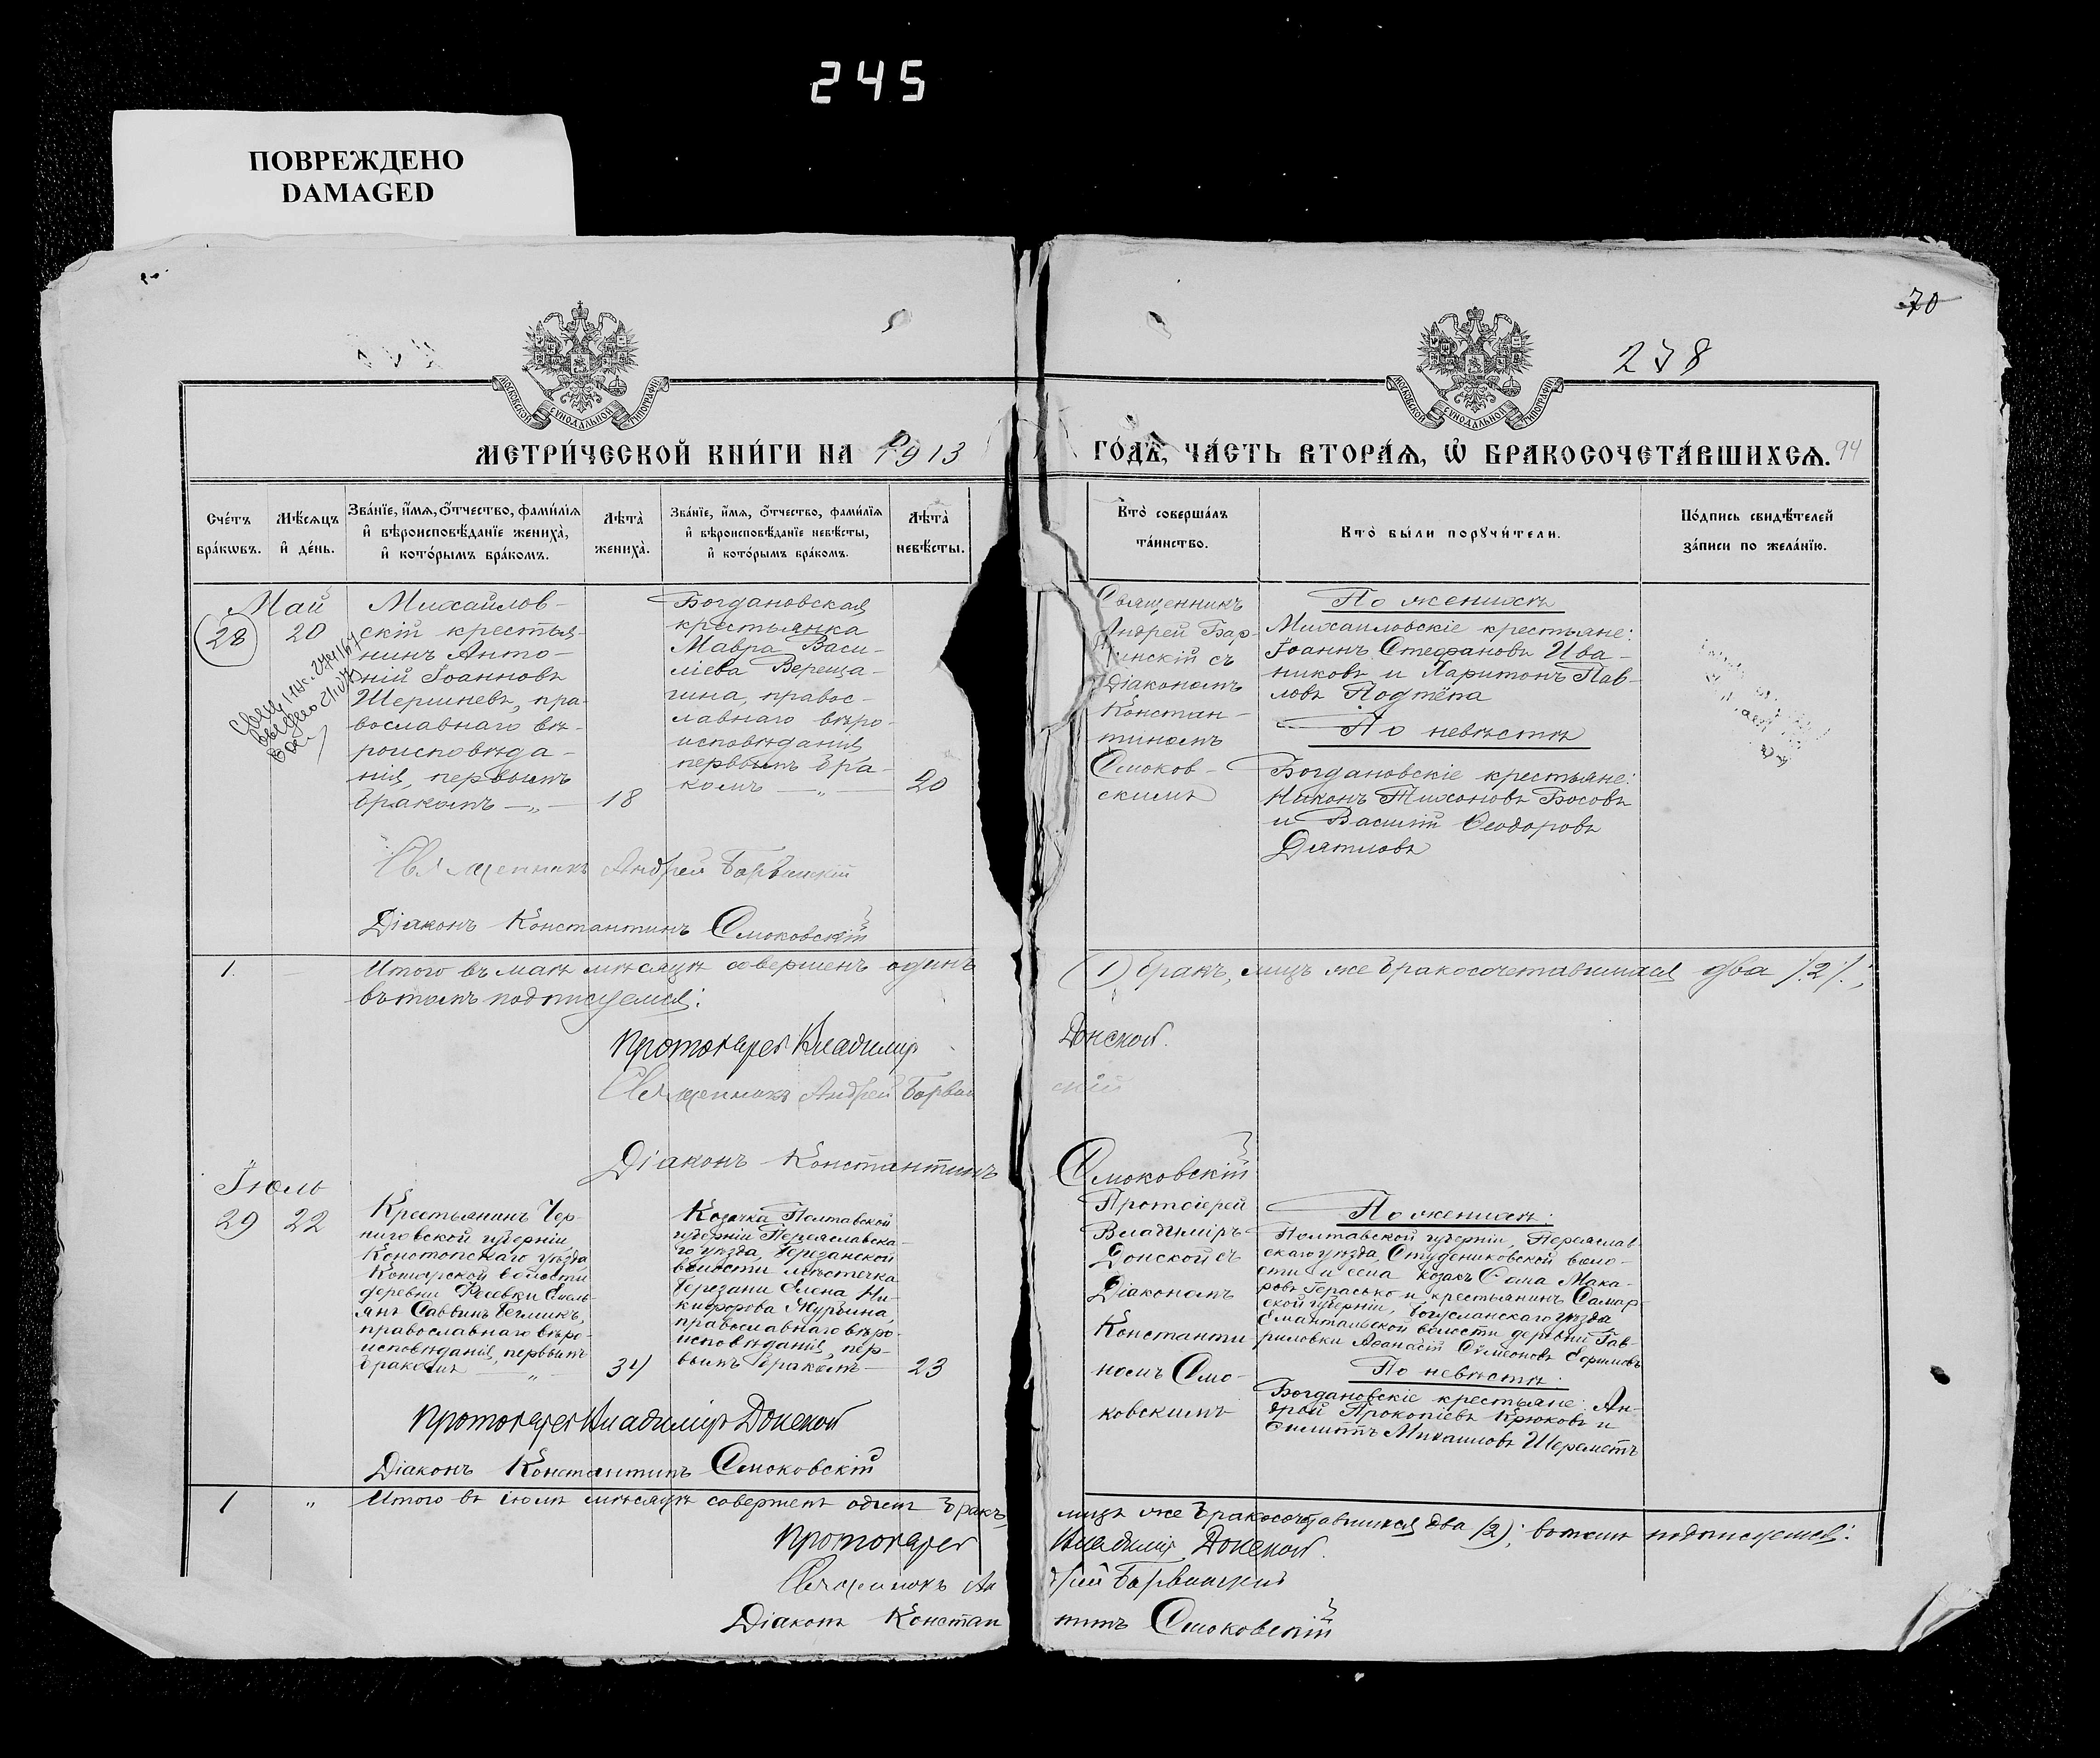 245
ПОВРЕЖДЕНО
DAMAGED
70
238
МОСКОВСКОЙ СѴНОДАЛЬНОЙ ТИПОГРАФІИ
МОСКОВСКОЙ СѴНОДАЛЬНОЙ ТИПОГРАФІИ
МЕТРИ́ЧЕСКОЙ КНИ́ГИ НА 1913
ГО́ДЪ, ЧА́СТЬ ВТОРА́Я, Ѽ БРАКОСОЧЕТА́ВШИХСЯ. 94
Сче́тъ
бра́кѡвъ.
Мѣ́сяцъ
и҆ де́нь.
Зва́нїе, и҆́мя, ѻ҆́тчество, фами́лїя
и҆ вѣроисповѣ́данїе жениха̀,
и҆ кото́рымъ бра́комъ.
Лѣта̀
жениха̀.
Зва́нїе, и҆́мя, ѻ҆́тчество, фами́лїя
и҆ вѣроисповѣ́данїе невѣ́сты,
и҆ кото́рымъ бра́комъ.
Лѣта̀
невѣ́сты.
Кто̀ соверша́лъ
та́инство.
Кто̀ бы́ли порꙋчи́тели.
По́дпись свидѣ́телей
за́писи по жела́нїю.
Май
28
20
Михайлов-
скій крестья-
нинъ Анто-
ній Іоанновъ
Шершневъ, пра-
вославнаго вѣ-
роисповѣда-
нія, первымъ
бракомъ — „ —
18
Богдановская
крестьянка
Мавра Васи-
ліева Вереща-
гина, правос-
лавнаго вѣро-
исповѣданія
первымъ бра-
комъ — „ —
20
Священникъ
Андрей Бар-
винскій съ
Діакономъ
Констан-
тиномъ
Смоков-
скимъ
По женихѣ
Михайловскіе крестьяне:
Іоаннъ Стефановъ Ива-
никовъ и Харитонъ Пав-
ловъ Подтёпа
По невѣстѣ
Богдановскіе крестьяне:
Никонъ Тихоновъ Босовъ
и Василій Ѳеодоровъ
Дятловъ
Священникъ Андрей Барвинскій
Діаконъ Константинъ Смоковскій
1. — Итого въ маѣ мѣсяцѣ совершенъ одинъ (1) бракъ, лицъ же бракосочетавшихся два /.2/.;
въ томъ подписуемся:
Протоіерей Владимір Донской.
Священникъ Андрей Барвинскій
Діаконъ Константинъ Смоковскій
Іюль
29
22
Крестьянинъ Чер-
ниговской губерніи,
Конотопскаго уѣзда,
волости
деревни Емель-
янъ Саввинъ
православнаго вѣро-
исповѣданія, первымъ
бракомъ — „ —
34
Козачка Полтавской
губерніи Переяславска-
го уѣзда, Березанской
волости мѣстечка
Березани Елена Ни-
кифорова Журбина,
православнаго вѣро-
исповѣданія, пер-
вымъ бракомъ —
23
Протоіерей
Владиміръ
Донской съ
Діакономъ
Константи
номъ Смо-
ковскимъ
По женихѣ:
Полтавской губерніи, Переяслав
скаго уѣзда, Студениковской воло-
сти и села козакъ Сава Мака-
ровъ Герасько и крестьянинъ Самар
ской губерніи, Бугусланскаго уѣзда
волости деревни Гав-
риловки Аѳанасій Сѵмеоновъ
По невѣстѣ:
Богдановскіе крестьяне: Ан-
дрей Прокопіевъ Крюковъ и
Михаиловъ Шереметъ
Протоіерей Владиміръ Донской
Діаконъ Константинъ Смоковскій
1 „ Итого въ іюлѣ мѣсяцѣ совершенъ одинъ бракъ, лицъ же бракосочетавшихся два (2); въ томъ подписуемся:
Протоіерей Владиміръ Донской.
Священникъ Андрей Барвинскій
Діаконъ Константинъ Смоковскій